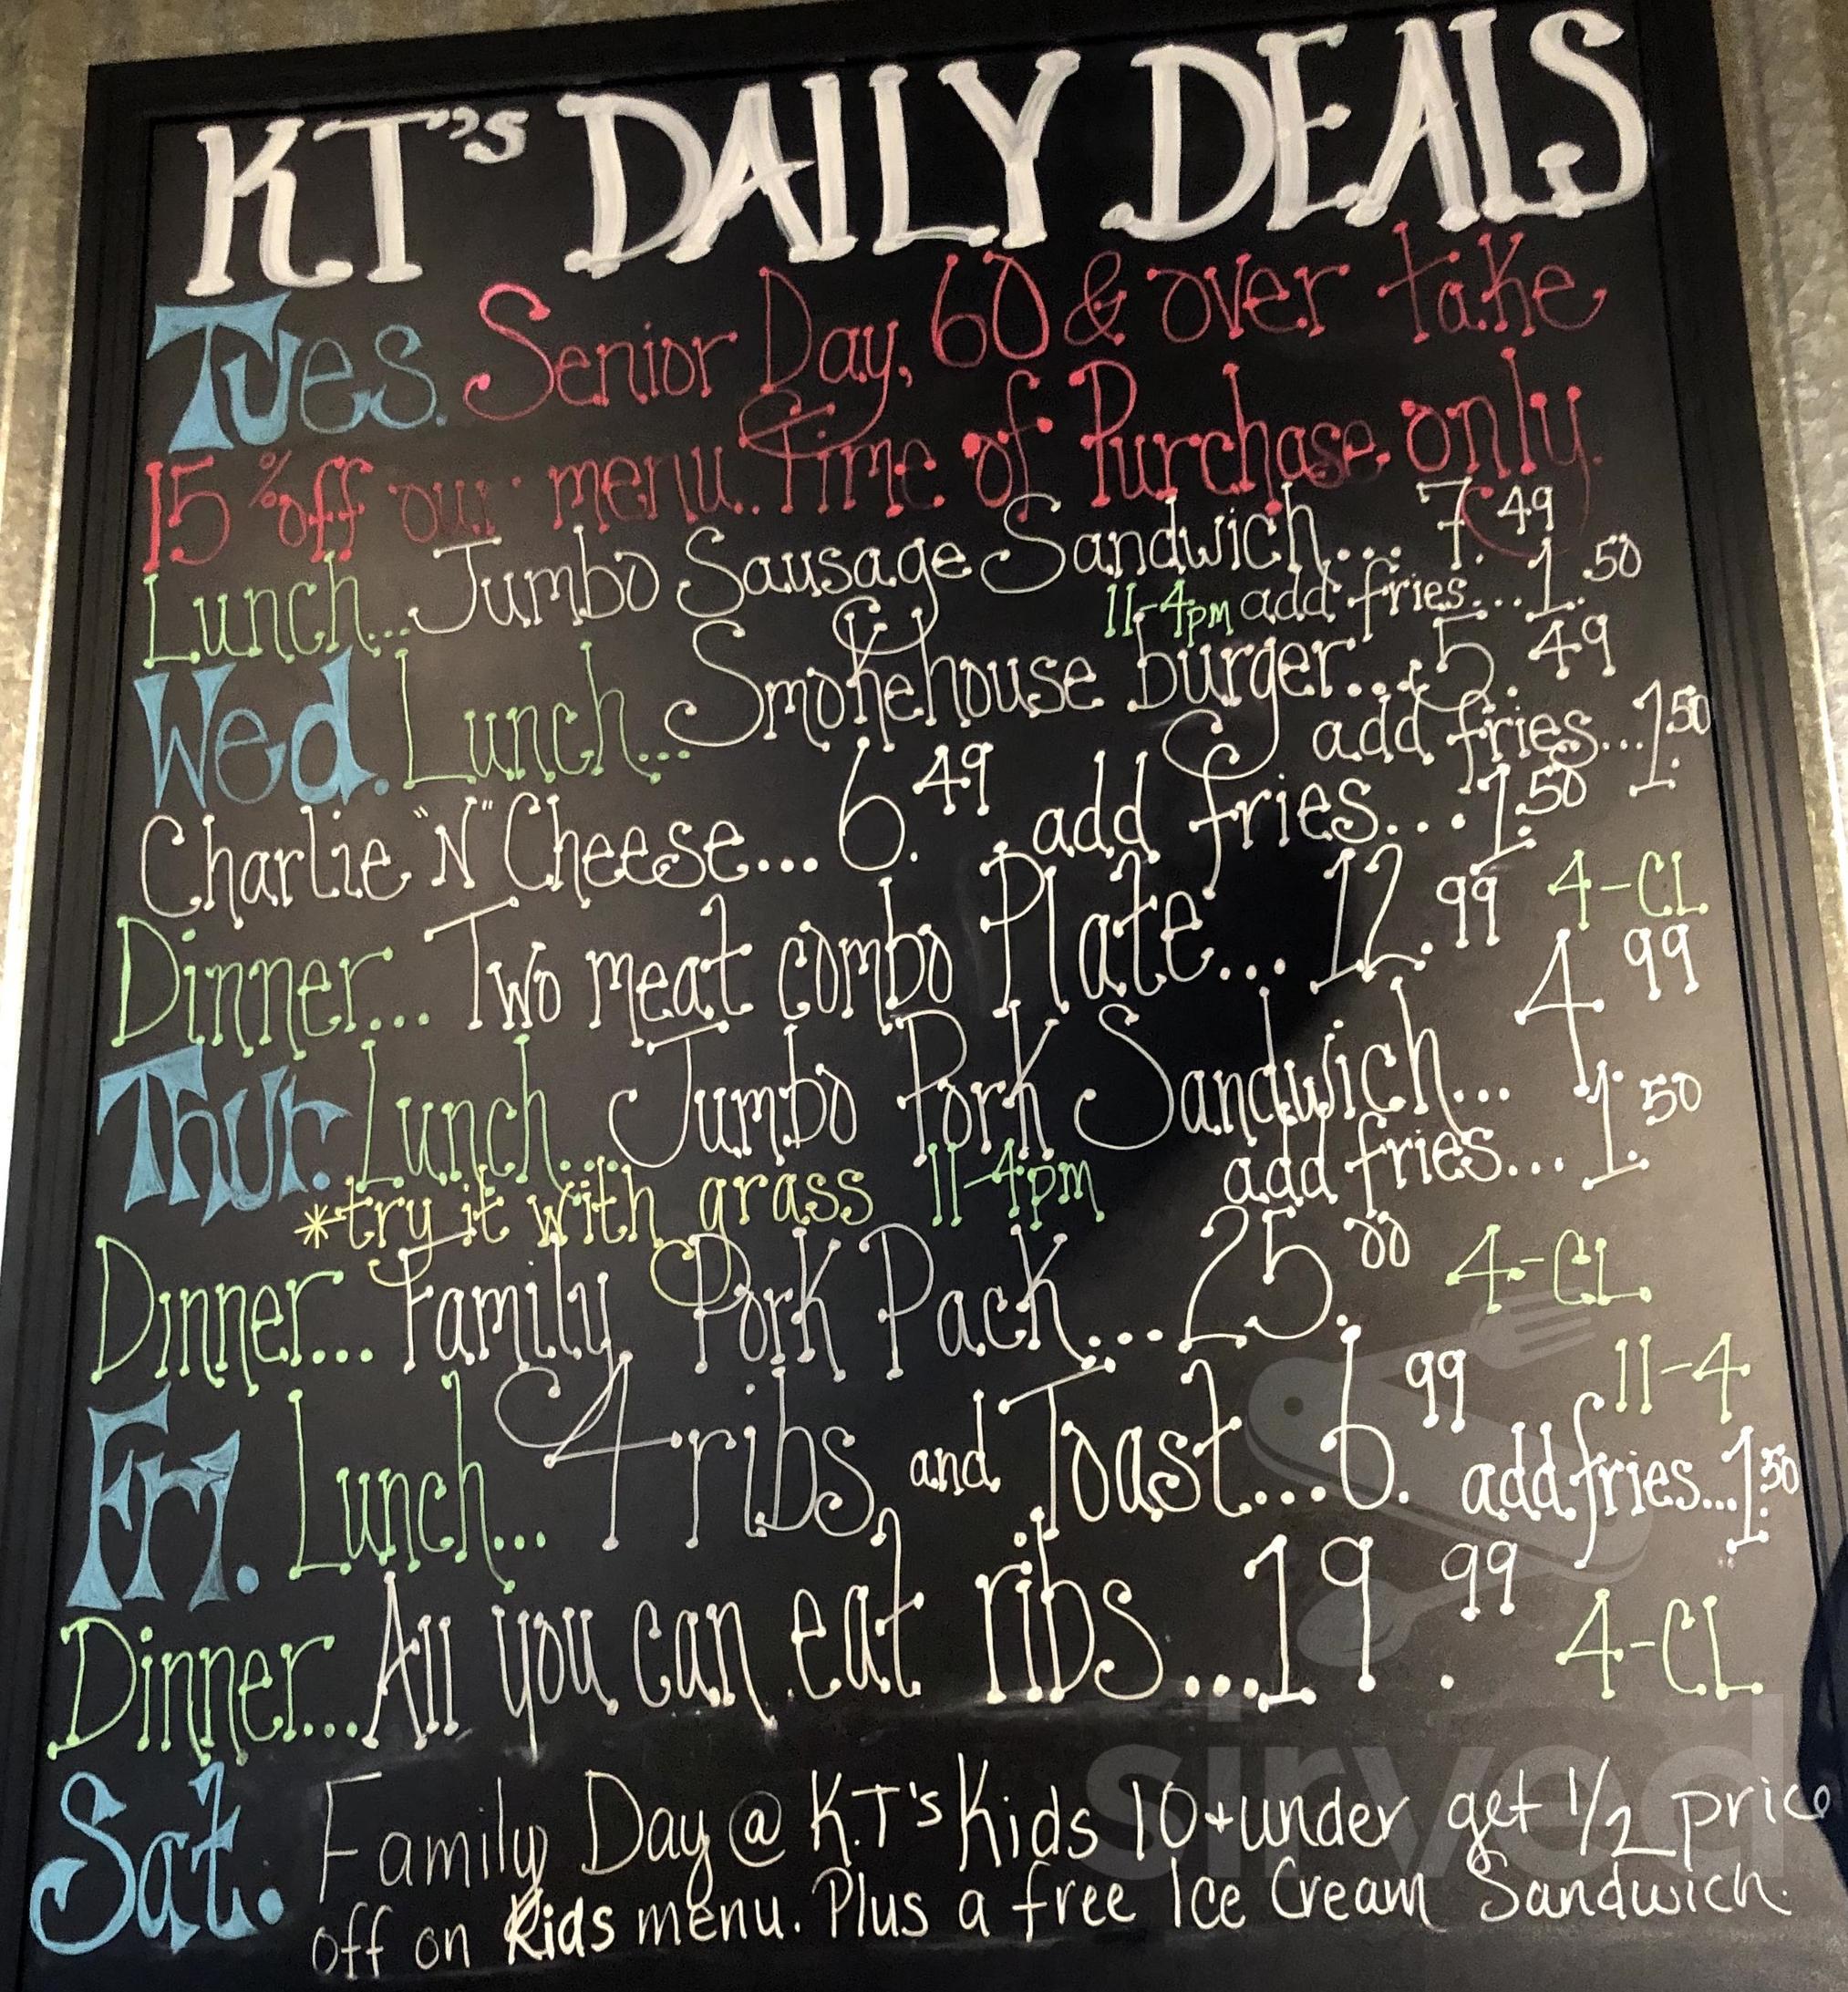 KT's DAILY DEALS
Tues. Senior Day, 60 & over take
15% off our menu. Time of Purchase only.
Lunch... Jumbo Sausage Sandwich... 7.49
11-4pm add fries... 1.50
Wed. Lunch... Smokehouse burger... 5.49
add fries... 1.50
Charlie "N" Cheese... 6.49 add fries... 1.50
Dinner... Two meat combo Plate... 12.99 4-CL
Thur. Lunch... Jumbo Pork Sandwich... 4.99
*try it with grass 11-4pm add fries... 1.50
Dinner... Family Pork Pack... 25.00 4-CL
Fri. Lunch... 4 ribs, and Toast... 6.99 11-4
add fries... 1.50
Dinner... All you can eat ribs... 19.99 4-CL
Sat. Family Day @ KT's Kids 10+under get 1/2 price
off on Kids menu. Plus a free Ice Cream Sandwich.
sirved